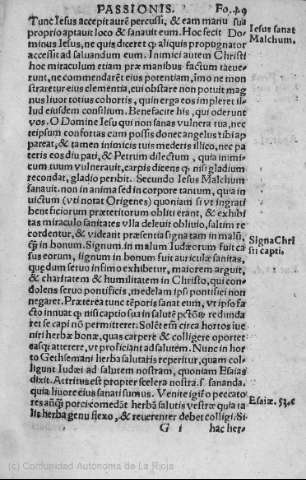 PASSIONIS. Fo. 49
Tunc Iesus accepit aurē percussi, & eam manu sua
proprio aptauit loco & sanauit eum. Hoc fecit Do
minus Iesus, ne quis diceret ꝙ aliquis propugnator
accessit ad saluandum eum. Inimici autem Christi
hoc miraculum etiam præ manibus factum tacue-
runt, ne commendarēt eius potentiam, imo ne mon
straretur eius clementia, cui obstare non potuit mag
nus liuor totius cohortis, quin erga eos impleret il-
lud eiusdem consilium. Benefacite his, qui oderunt
vos. O Domine Iesu qui non sanas vulnera tua, nec
teipsum confortas cum possis donec angelus tibi ap
pareat, & tamen inimicis tuis mederis illico, nec pa
teris eos diu pati, & Petrum dilectum, quia inimi-
cum tuum vulnerauit, carpis dicens ꝙ nisi gladium
recondat, gladio peribit. Secundo Iesus Malchum
sanauit non in anima sed in corpore tantum, quia in
uictum (vti notat Origenes) quoniam si vt ingrati
beneficiorum præteritorum obliti erant, & exhibi
tas miraculo sanitates vlla deleuit obliuio, saltim re
cordentur, & videant præsentia signa tam in malū,
q̄ in bonum. Signum in malum Iudæorum fuit ca
sus eorum, signum in bonum fuit auriculæ sanitas,
quę dum seruo infimo exhibetur, maiorem arguit,
& charitatem & humilitatem in Christo, qui con-
dolens seruo pontificis, medelam ipsi pontifici non
negaret. Præterea tunc tēporis sanat eum, vt ipso fa
cto innuat ꝙ nis captio sua in salutē pctōrū redunda
ret se capi nō permitteret. Solēt em̄ circa hortos iue
niri herbæ bonæ, quas carpere & colligere oportet
easq̄ atterere, vt proficiant ad salutem. Nunc in hor
to Gethsemani herba salutaris reperitur, quam col-
ligunt Iudæi ad salutem nostram, quoniam Esaias
dixit. Attritus est propter scelera nostra. s. sananda.
quia liuore eius sanati sumus. Venite igit̄ o peccato
res atq̄ porci comedāt herbā salutis vestræ quia ta
lis herba genu flexo, & reuerenter debet colligi. Si-
G i hac her-
Iesus sanat
Malchum,
Signa Chri
sti capti,
Esaiæ. 53. c
(c) Comunidad Autonoma de La Rioja